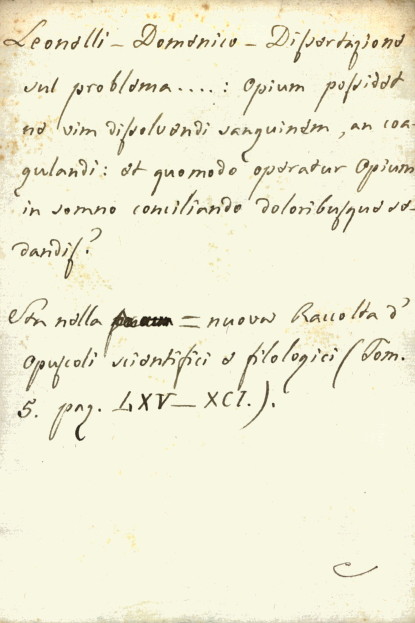 Leonelli - Domenico - Dissertazione
sul problema....: Opium possideat
ne vim dissolvendi sanguinem, an coa-
gulandi: et quomodo operatur Opium
in somno conciliando doloribusque se-
dandis?
Sta nella = nuova Raccolta d'
Opuscoli scientifici e filologici (Tom.
5. pag. LXV - XCI.).